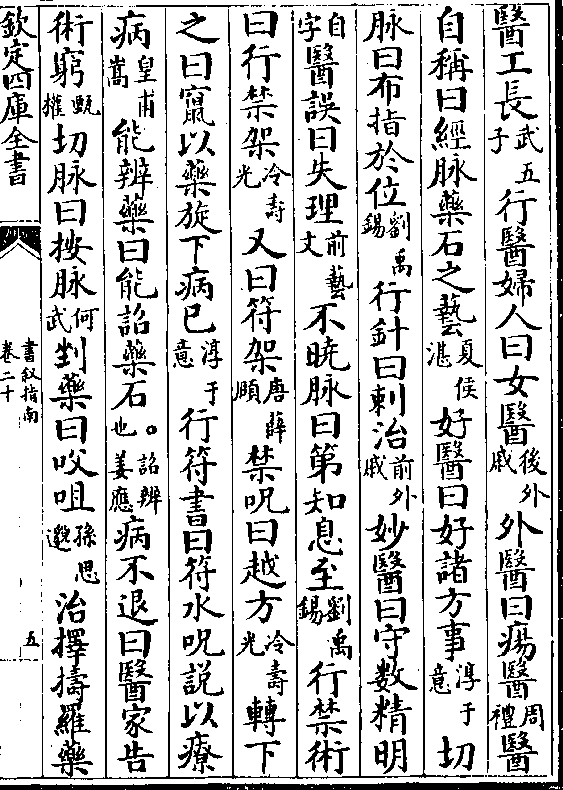 醫工長武五子行醫婦人曰女醫後外戚外醫曰瘍醫周禮醫
自稱曰經脉藥石之藝夏侯湛好醫曰好諸方事淳于意切
脉曰布指於位劉禹錫行針曰刺治前外戚妙醫曰守數精明
自字醫誤曰失理前藝文不曉脉曰第知息至劉禹錫行禁術
曰行禁架冷壽光又曰符架唐薛頥禁呪曰越方冷壽光轉下
之曰竄以藥旋下病已淳于意行符書曰符水呪説以療
病皇甫嵩能辨藥曰能詔藥石。詔辨也姜應病不退曰醫家告
術窮甄權切脉曰按脉何武剉藥曰㕮咀孫思邈治擇擣羅藥
欽定四庫全書
書叙指南
卷二十
五